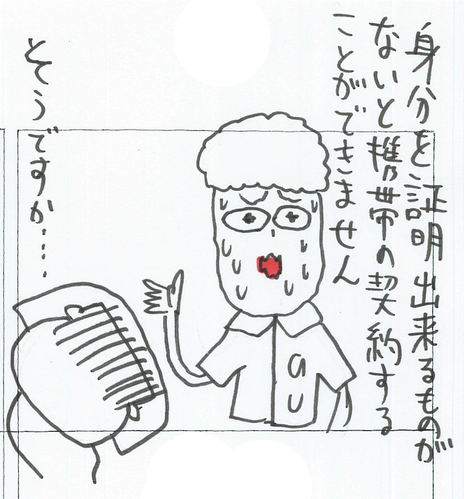 身分を証明出来るものが
ないと携帯の契約する
ことができません
そうですか....
au